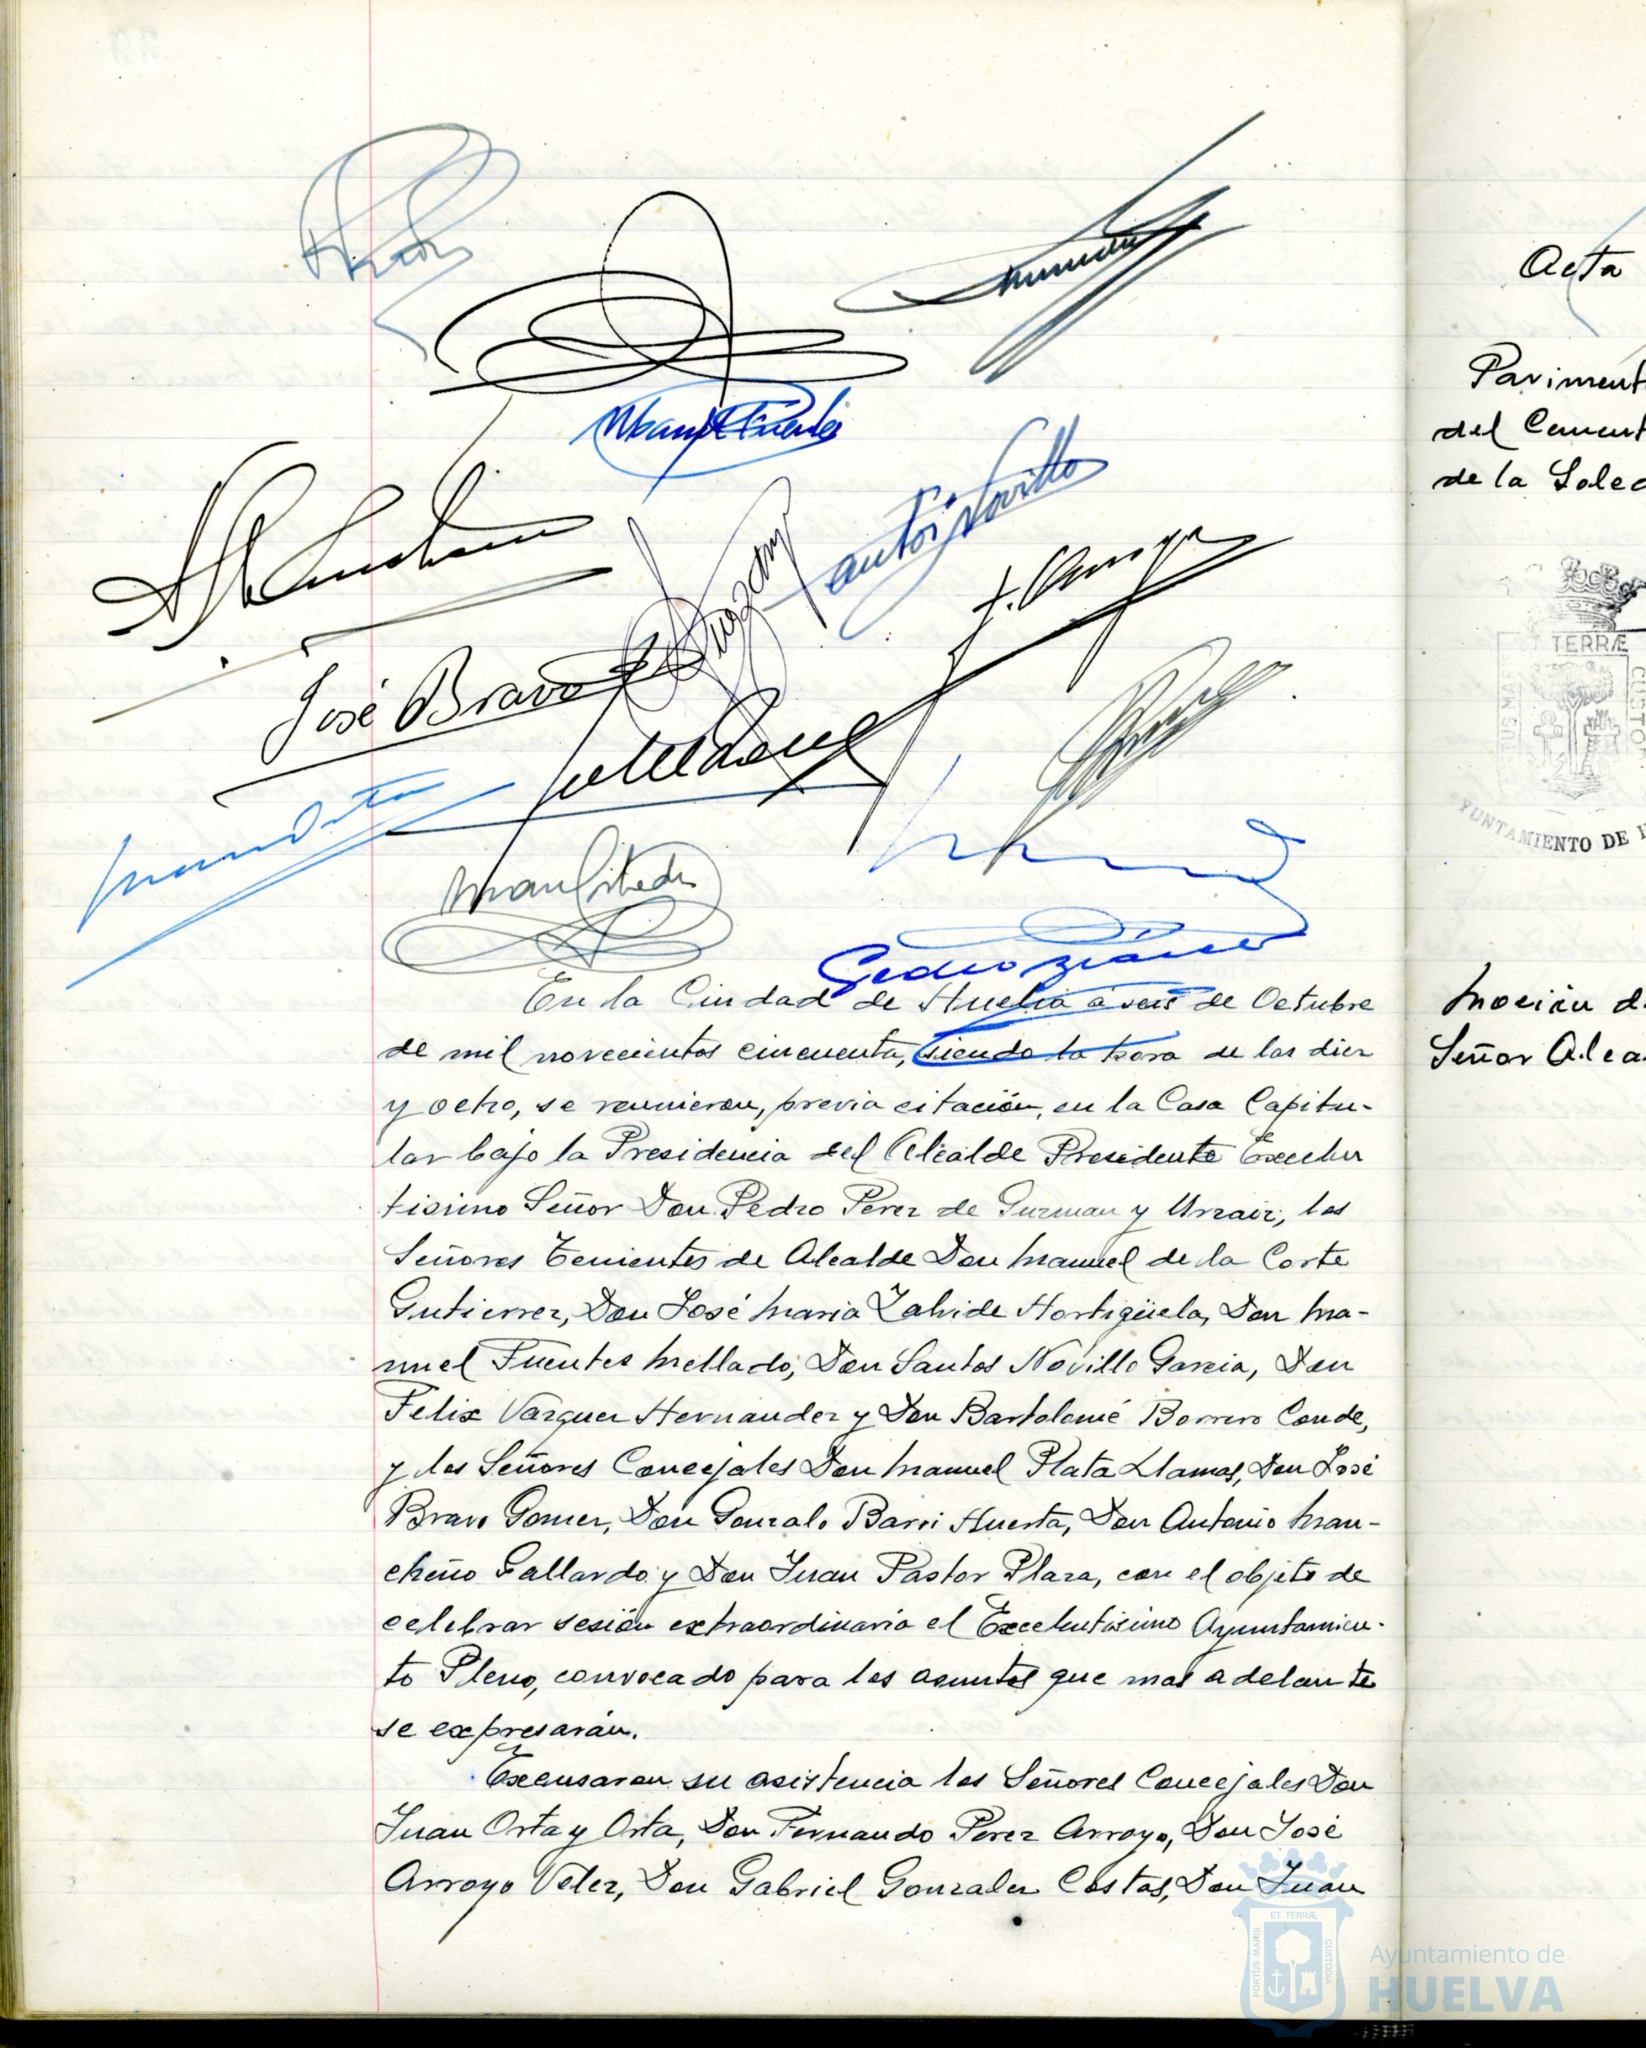 José Bravo
En la Ciudad de Huelva a seis de Octubre
de mil novecientos cincuenta, siendo la hora de las diez
y ocho, se reunieron, previa citación, en la Casa Capitu-
lar bajo la Presidencia del Alcalde Presidente Excelen
tisimo Señor Don Pedro Perez de Guzman y Urzaiz, los
Señores Tenientes de Alcalde Don Manuel de la Corte
Gutierrez, Don José Maria Zahide Hortigüela, Don Ma-
nuel Fuentes Mellado, Don Santos Novillo Garcia, Don
Felix Vazquez Hernandez y Don Bartolomé Borrero Conde,
y los Señores Concejales Don Manuel Plata Llamas, Don José
Bravo Gomez, Don Gonzalo Barri Huerta, Don Antonio Man-
cheño Gallardo y Don Juan Pastor Plaza, con el objeto de
celebrar sesión extraordinaria el Excelentisimo Ayuntamien-
to Pleno, convocado para los asuntos que mas adelante
se expresarán.
Excusaron su asistencia los Señores Concejales Don
Juan Orta y Orta, Don Fernando Perez Arroyo, Don José
Arroyo Velez, Don Gabriel Gonzalez Costas, Don Juan
Acta
Paviment
del Cement
de la Soled
TERRÆ
AYUNTAMIENTO DE
Moción d
Señor Alca
ET TERRÆ
PORTUS MARIS
CUSTODIA
Ayuntamiento de
HUELVA